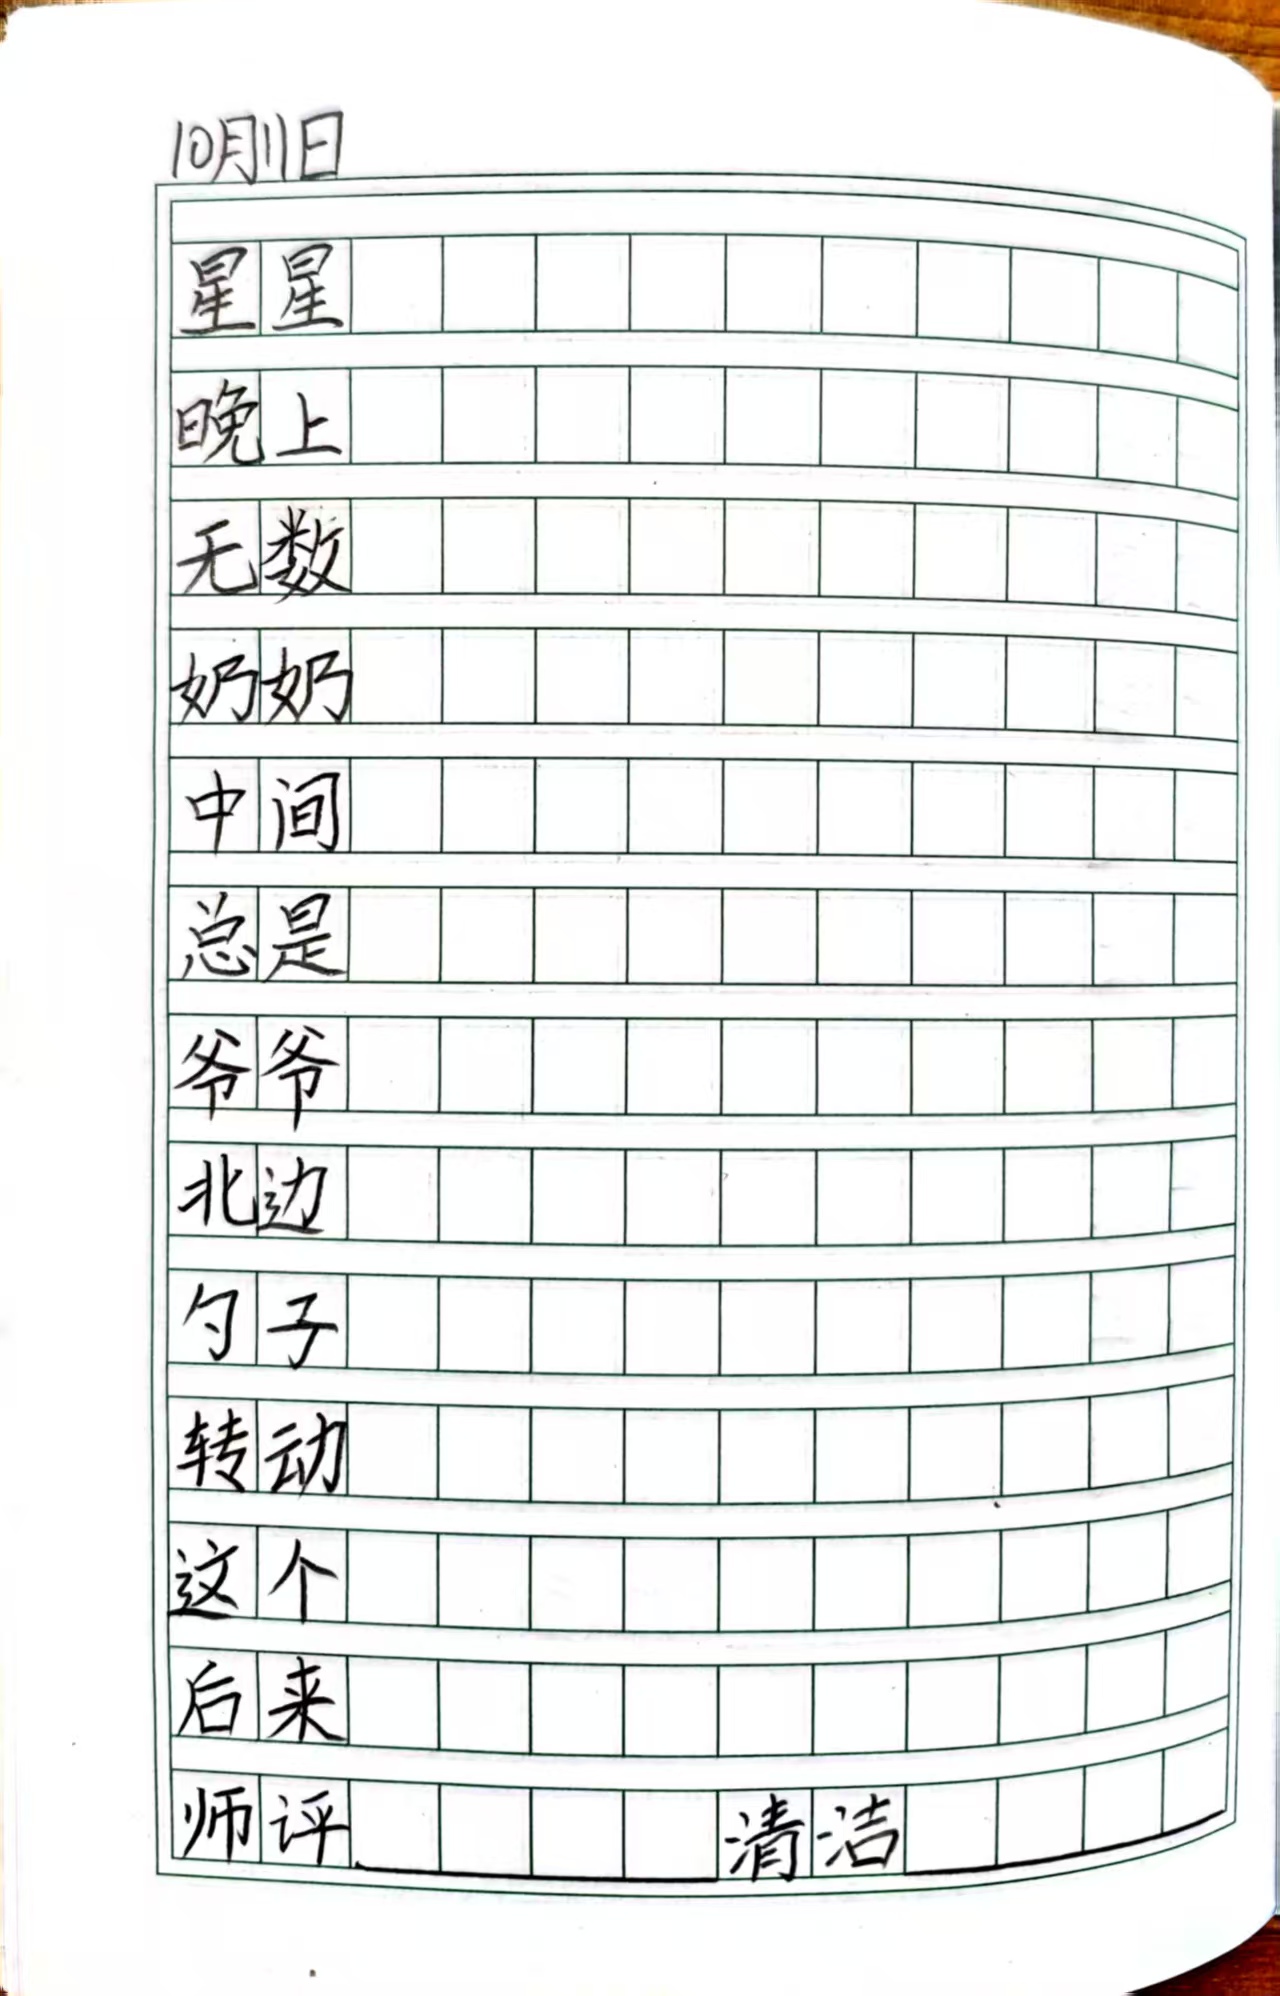 10月11日
星星
晚上
无数
奶奶
中间
总是
爷爷
北边
勺子
转动
这个
后来
师评 清洁